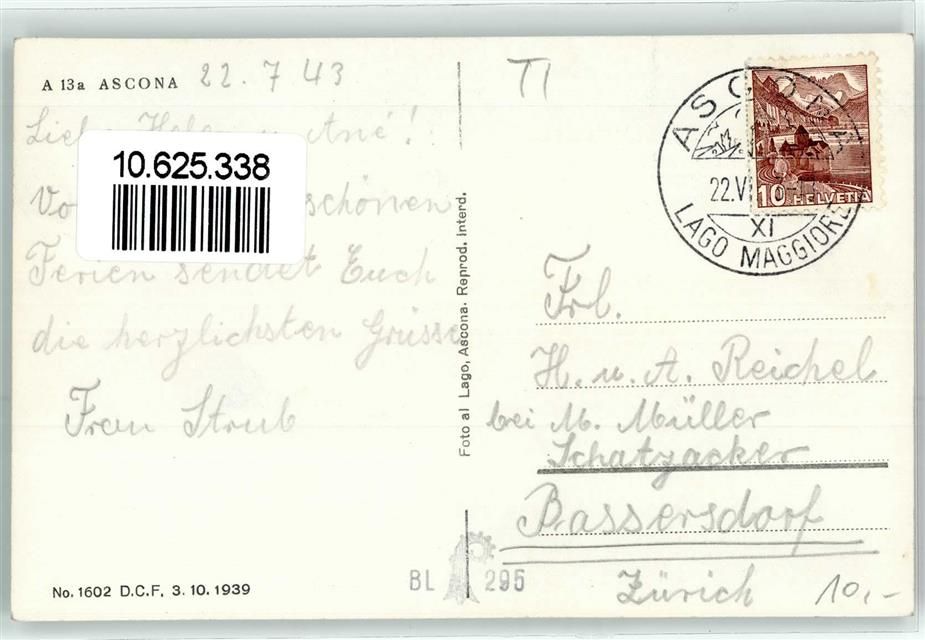 A 13a ASCONA 22.7 43
TI
Liebe !
10.625.338
schönen
Ferien sendet Euch
die herzlichsten Grüsse
Frau Strub
No. 1602 D.C.F. 3. 10. 1939
Foto al Lago, Ascona. Reprod. interd.
BL 295
ASCONA
22.VI
XI
LAGO MAGGIORE
10 HELVETIA
Frl.
H. u. A. Reichel
bei M. Müller
Schatzacker
Bassersdorf
Zürich
10,-